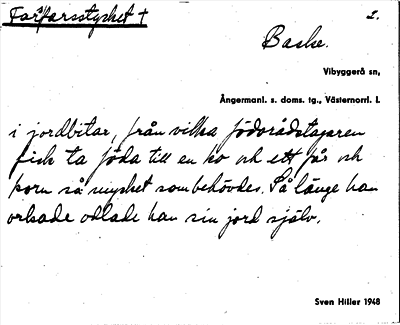 Farfarsstycket †
2.
Baske.
Vibyggerå sn,
Ångermanl. s. doms. tg., Västernorrl. l.
i jordbitar, från vilka födorådstagaren
fick ta föda till en ko och ett får och
korn så mycket som behövdes. Så länge han
orkade odlade han sin jord själv.
Sven Hiller 1948